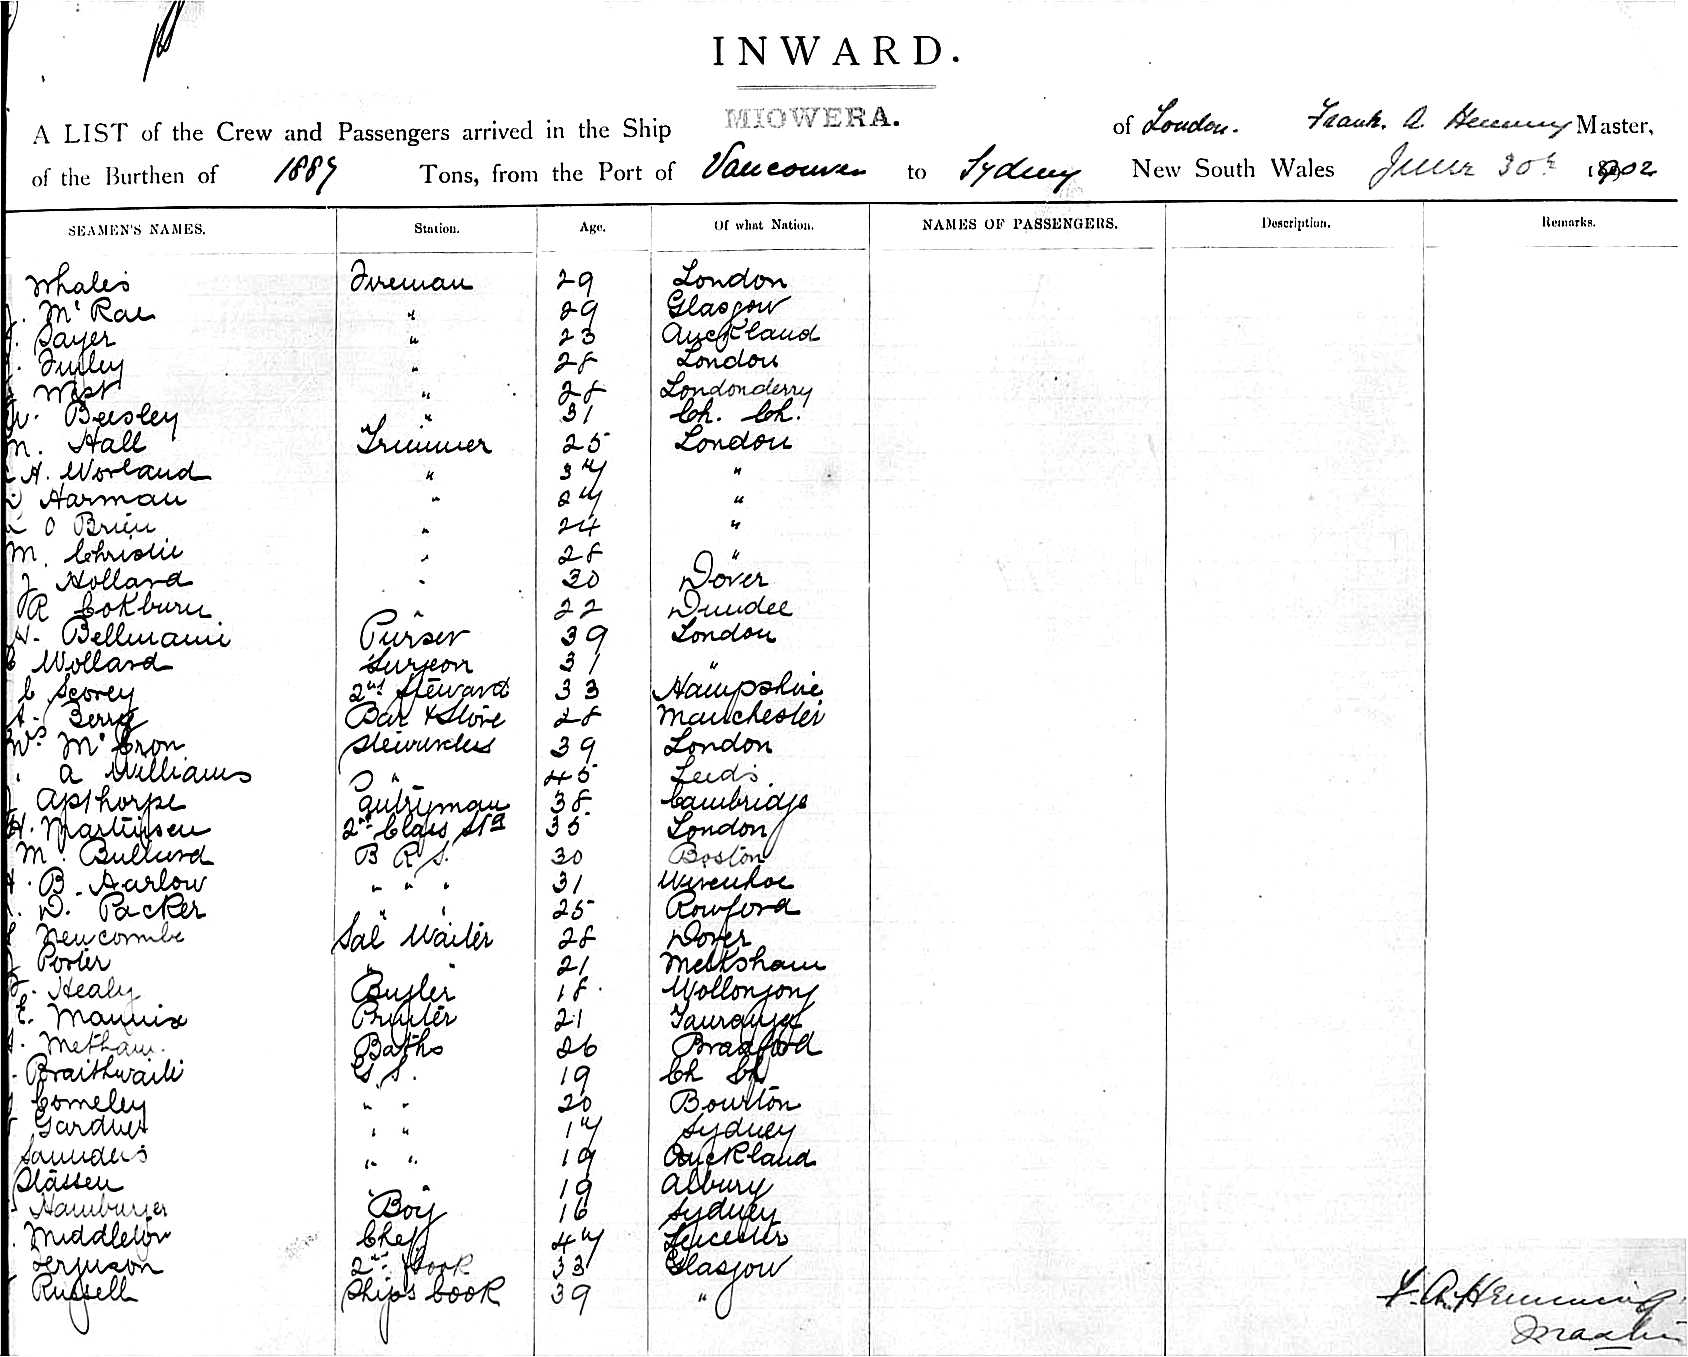 INWARD.
A LIST of the Crew and Passengers arrived in the Ship MIOWERA. of London. Frank. A. Hemming Master,
of the Burthen of 1889 Tons, from the Port of Vancouver to Sydney New South Wales June 30th 1902
SEAMEN'S NAMES. Station. Age. Of what Nation. NAMES OF PASSENGERS. Description. Remarks.
Whales Fireman 29 London
McRae " 29 Glasgow
Sayer " 23 Auckland
" 28 London
West " 28 Londonderry
W. Beesley " 31 Ch. Ch.
M. Hall Trimmer 25 London
A. Worland " 34 "
Harman " 24 "
O Brien " 24 "
M. Christie " 28 "
J Hollard " 30 Dover
R Cokburn " 22 Dundee
H. Bellmaine Purser 39 London
Wollard Surgeon 31 "
C Scorey 2nd Steward 33 Hampshire
A. Berry Bar & Store 28 Manchester
Mrs McCron Stewardess 39 London
A Williams " 45 Leeds
Apthorpe Pantryman 38 Cambridge
H. Martinsen 2nd Class Std 35 London
M. Bullard B R S. 30 Boston
B. Harlow " " " 31 Wivenhoe
D. Packer " " 25 Romford
Newcombe Sal Waiter 28 Dover
Porter " " 21 Melksham
Healy Bugler 18 Wollongong
E. Mannix Printer 21 Tauranga
Metham. Baths 26 Bradford
Braithwaite G S. 19 Ch Ch
Comeley " " 20 Bourton
Gardner " " 17 Sydney
Saunders " " 19 Auckland
Slatten " " 19 Albury
Hamburger Boy 16 Sydney
Middleton Chef 47 Leicester
Ferguson 2nd Cook 33 Glasgow
Russell Ships Cook 39 "
F. A. Hemming
Master